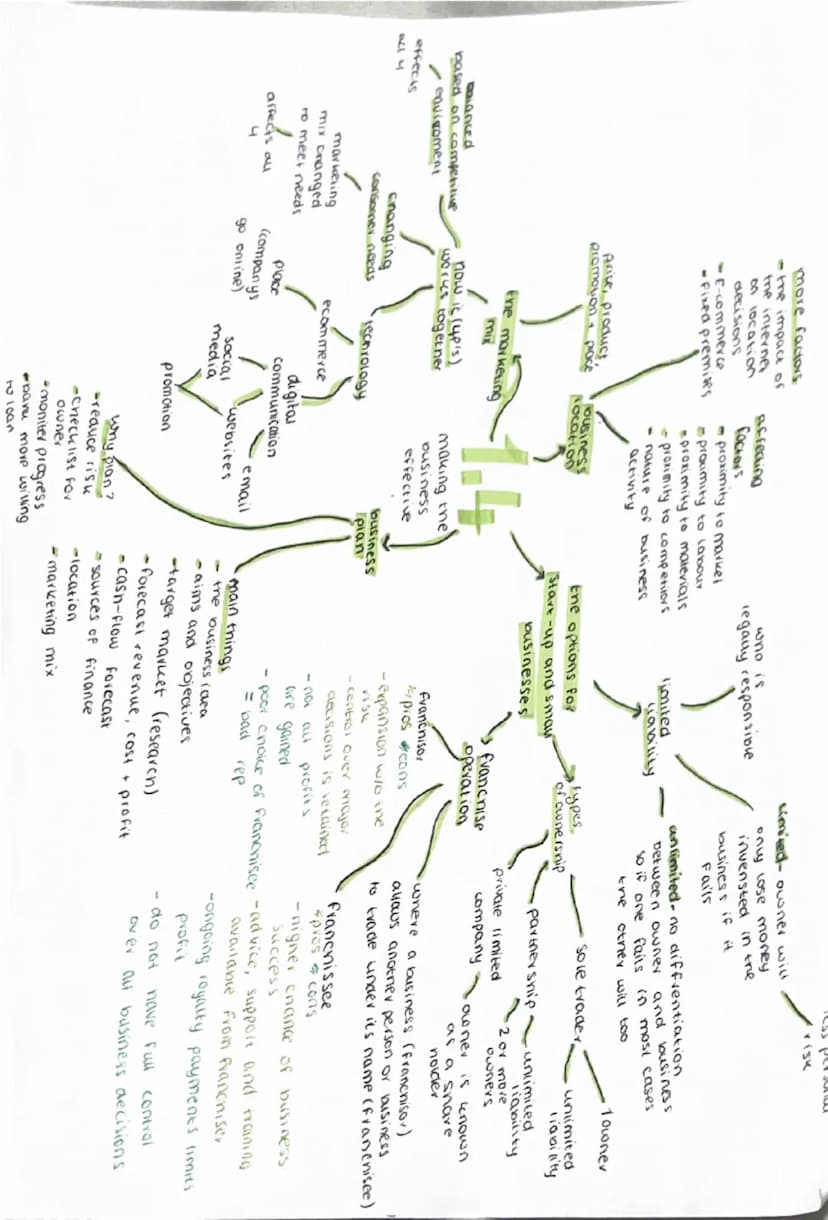 1.4
making the
business
effective
business
location
more factors
- the impact of
the internet
on location
decisions
- E-commerce
- fixed premises
affecting
factors
- proximity to market
- proximity to labour
- proximity to materials
- proximity to competitors
- nature of business
activity
the marketing
mix
price, product,
promotion + place
how it (4p's)
works together
balanced
based on competitive
environment
effects
all 4
changing
consumer needs
marketing
mix changed
to meet needs
affects all
4
technology
ecommerce
place
(companys
go online)
digital
communication
social
media
websites
email
promotion
business
plan
why plan?
- reduce risk
- checklist for
owner
- moniter progress
- bank more willing
to loan
main things
- the business idea
- aims and objectives
- target market (research)
- forecast revenue, cost + profit
- cash-flow forecast
- sources of finance
- location
- marketing mix
the options for
start-up and small
businesses
limited
liability
who is
legally responsible
limited - owner will
only lose money
invensted in the
business if it
fails
risk
unlimited - no differentiation
between owner and business
so if one fails in most cases
the other will too
types
of ownership
sole trader
1 owner
unlimited
liability
partnership
unlimited
liability
2 or more
owners
private limited
company
owner is known
as a share
holder
franchise
operation
where a business (franchisor)
allows another person or business
to trade under its name (franchisee)
franchisor
pros + cons
- expansion w/o the
risk
- control over major
decisions is retained
- not all profits
are gained
- poor choice of franchisee
= bad rep
franchisee
pros + cons
- higher chance of business
success
- advice, support and training
available from franchiser
- ongoing royalty payments limits
profit
- do not have full control
over all business decisions